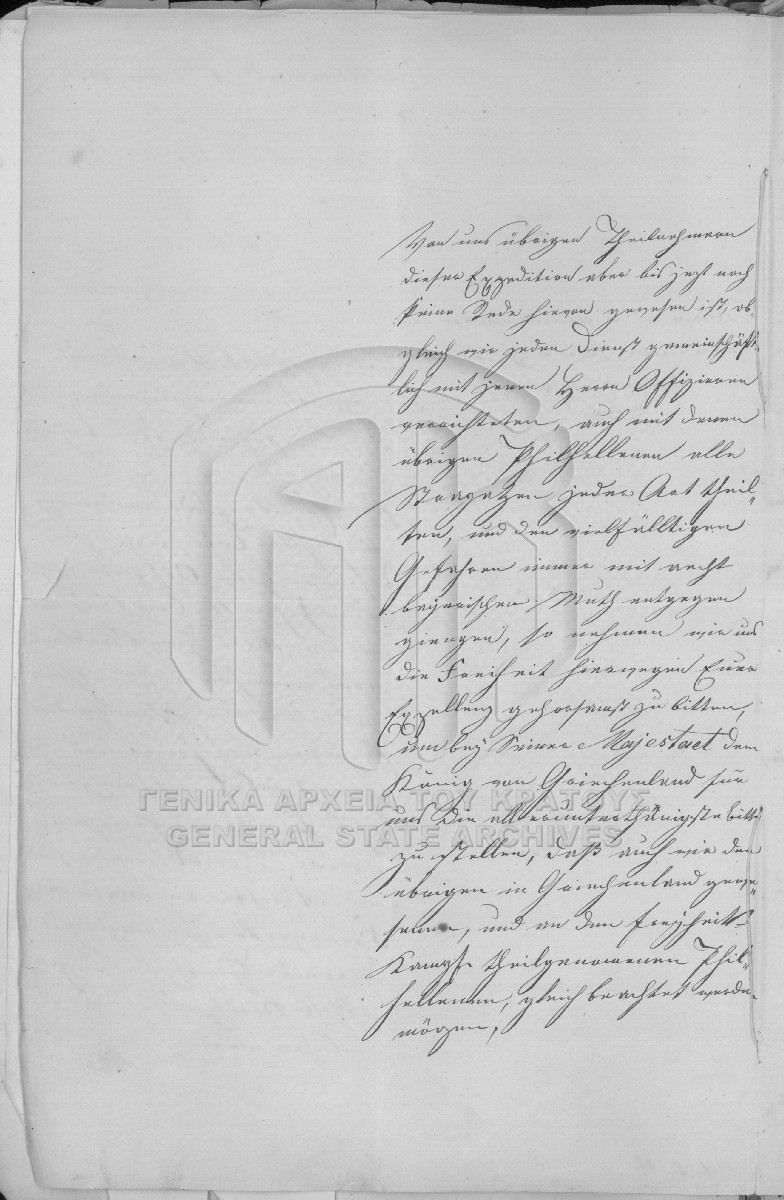 Von uns übrigen Theilnehmern
dieser Expedition aber bis jezt noch
keine Rede hievon gewesen ist, ob-
gleich wir jeden Dienst gemeinschäft-
lich mit jenen Herrn Offizieren
verrichteten, auch mit denen
übrigen Philhellenen alle
Strapatzen jeder Art theil-
ten, und den vielfälltigen
Gefahren immer mit ächt
beyerischen Muth entgegen
giengen, so nehmen wir uns
die Freiheit hierwegen Euer
Exzellenz gehorsamst zu bitten,
um bey Seiner Majestaet dem
König von Griechenland für
uns die allerunterthänigste bitte
zu stellen, daß auch wir den
übrigen in Griechenland gewe-
senen, und an dem Freyheits-
Kampfe theilgenommenen Phil-
hellenen, gleich beachtet werden
mögen,
ΓΕΝΙΚΑ ΑΡΧΕΙΑ ΤΟΥ ΚΡΑΤΟΥΣ
GENERAL STATE ARCHIVES